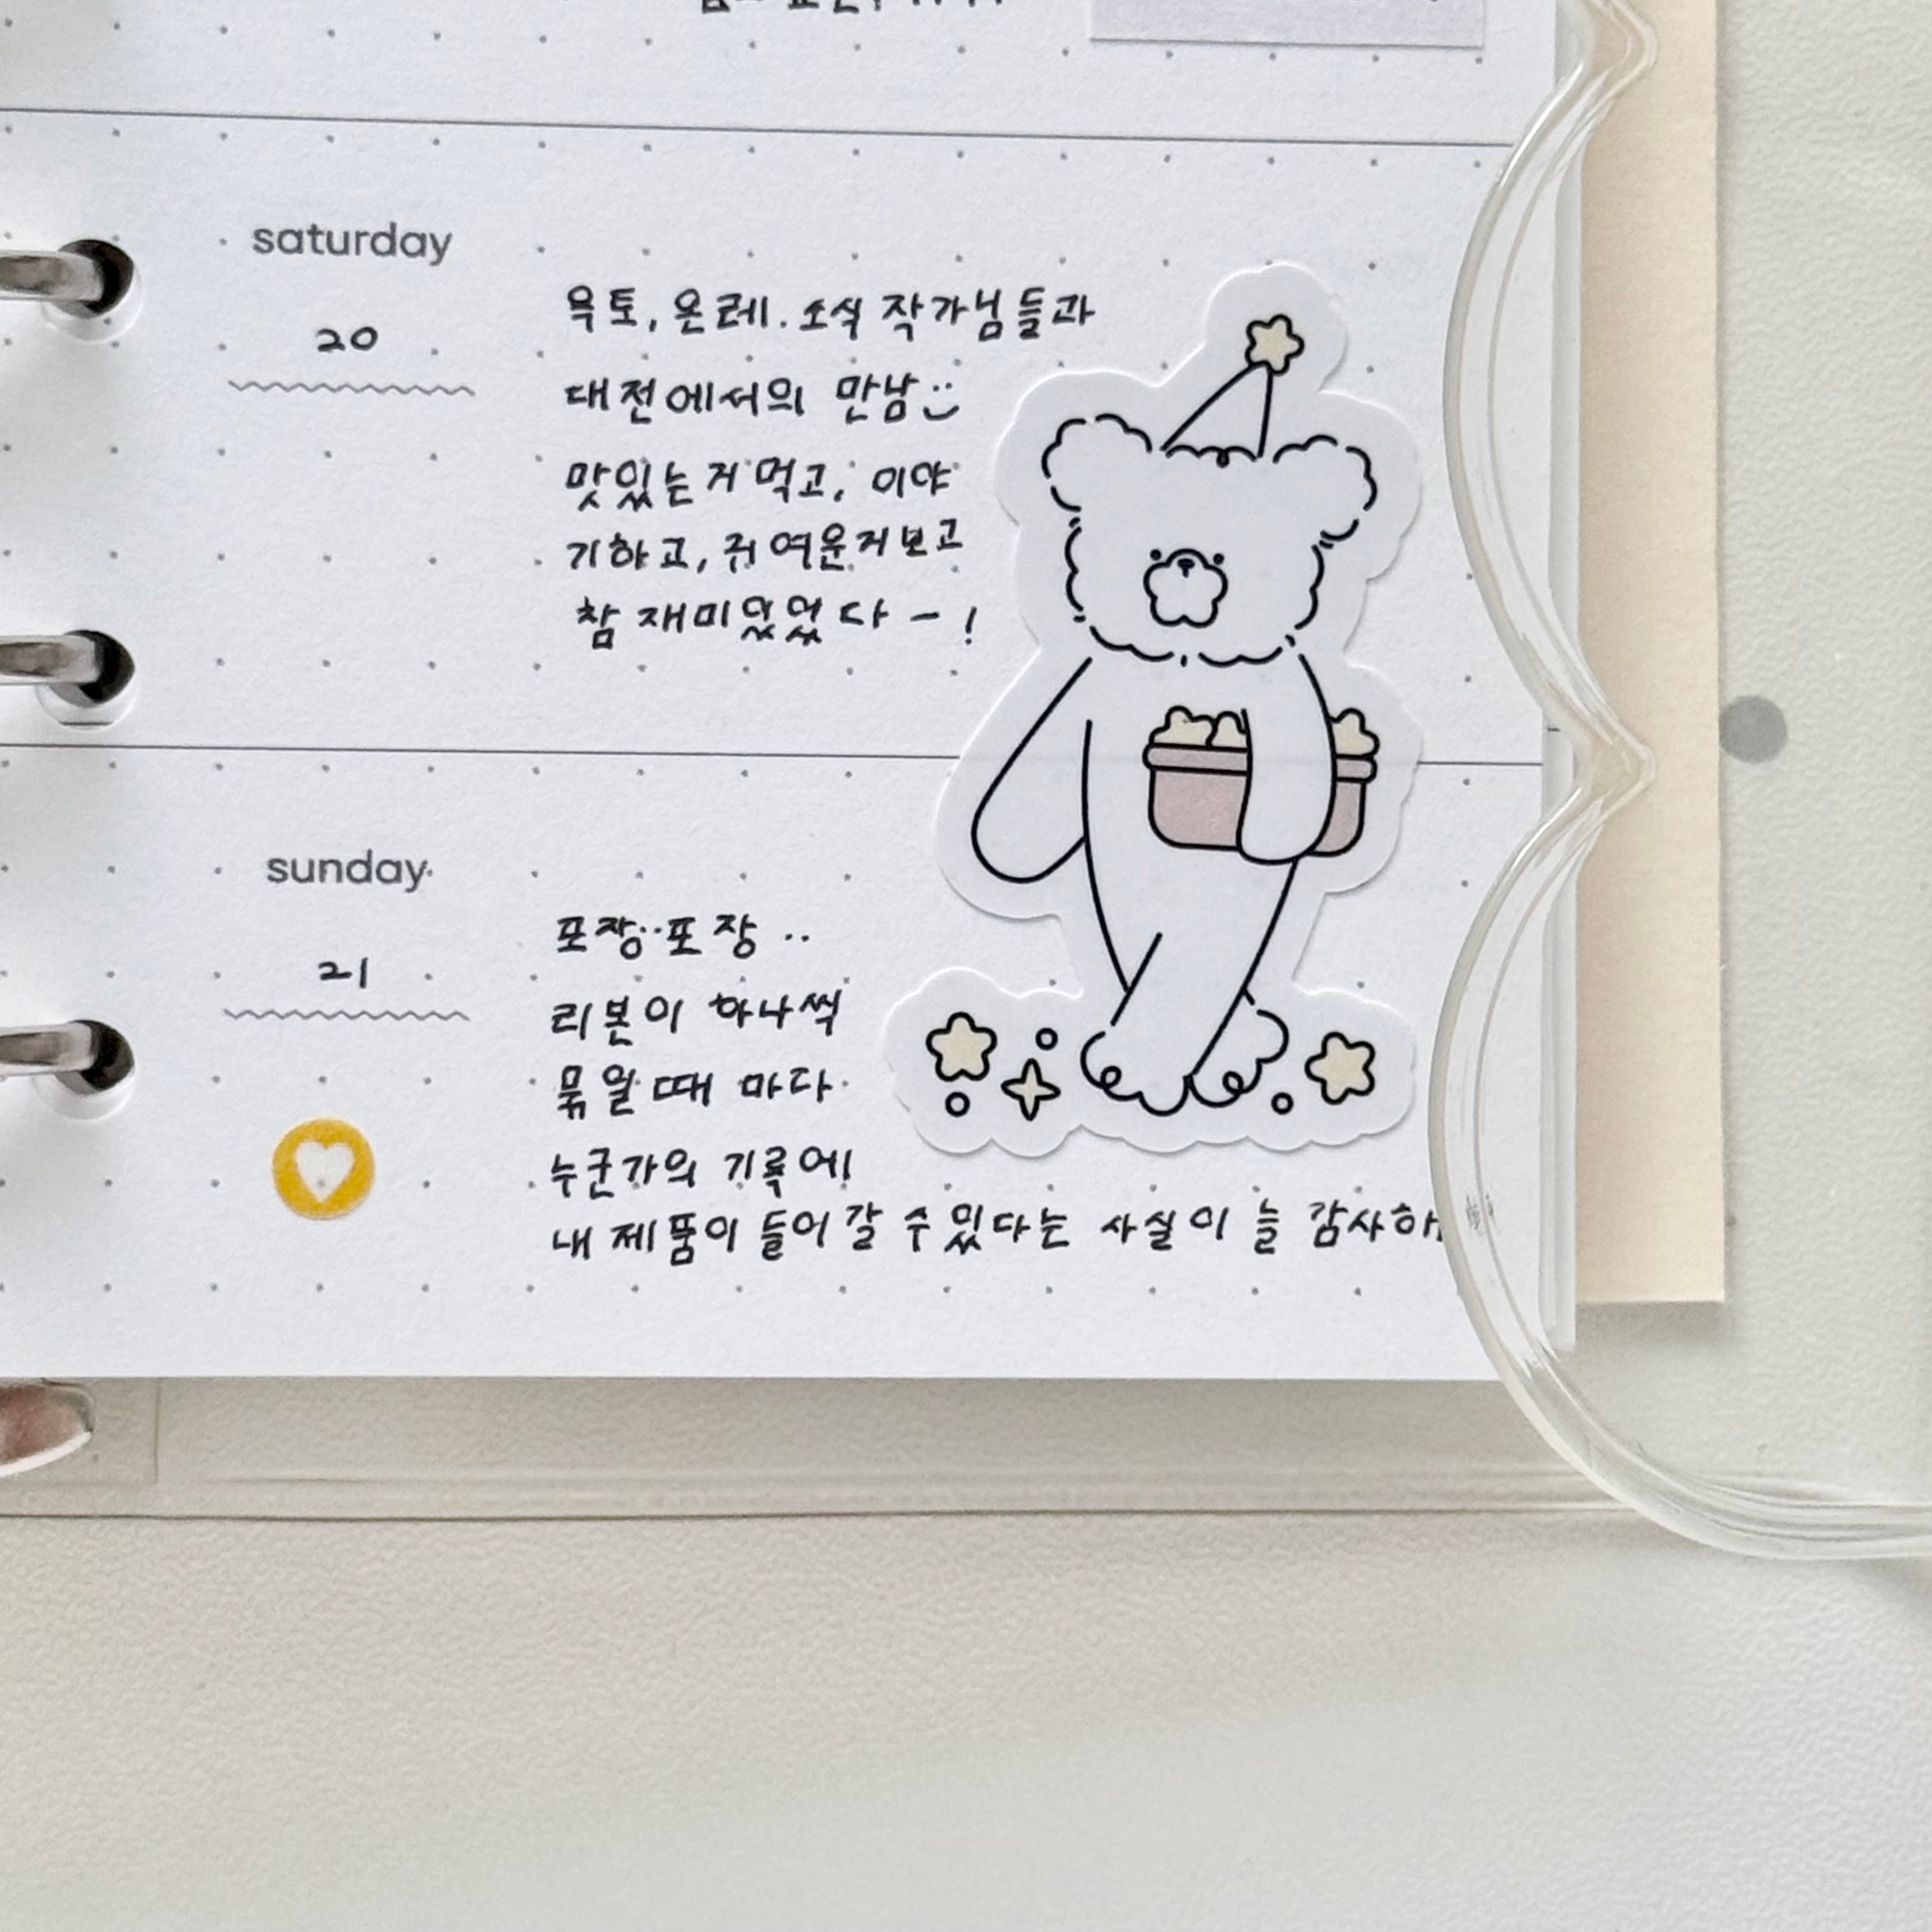 saturday
20
욕토, 온레. 소식 작가님들과
대전에서의 만남
맛있는거 먹고, 이야
기하고, 귀여운거보고
참 재미있었다 - !
sunday
21
포장..포장 ..
리본이 하나씩
묶일 때 마다
누군가의 기록에!
내 제품이 들어갈 수있다는 사실이 늘 감사해